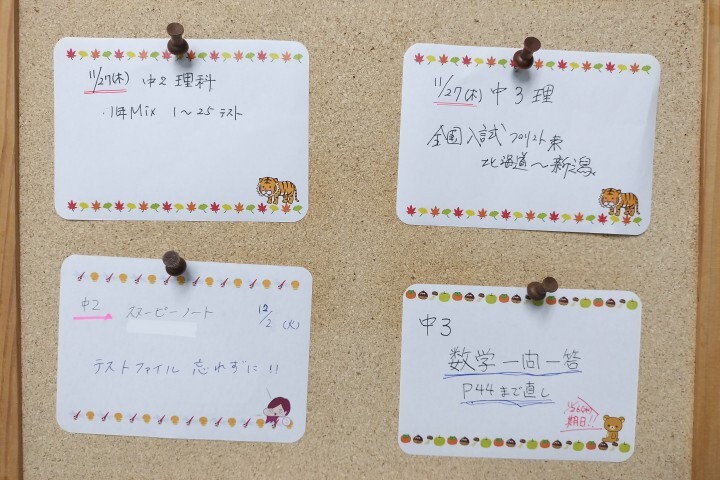 11/27(木) 中2 理科
・1年Mix 1〜25 テスト
11/27(木) 中3 理
全国入試プリント集
北海道〜新潟
中2 スヌーピーノート 12/2 (火)
テストファイル 忘れずに!!
中3
数学一問一答
P44まで直し
期日!!